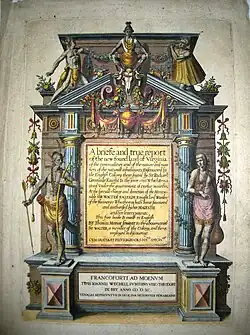 A briefe and true report
of the new found land of Virginia
of the commodities and of the nature and man
ners of the naturall inhabitants. Discouered by
the English Colony there seated by Sir Richard
Greinuile Knight In the yeere 1585. Which
rema
ned Vnder the gouernement of twelue monethes,
At the speciall charge and direction of the Honou
rable SIR WALTER RALEIGH Knight lord Warden
of the stanneries Who therein hath beene fauoured
and authorised by her MAIESTIE
and her letters patents:
This fore booke Is made in English
By Thomas Hariot seruant to the abouenamed
SIR WALTER, a member of the Colony, and there
imployed in discouering
CVM GRATIA ET PRIVILEGIO CAES. MA
FRANCOFORTI AD MOENVM
TYPIS IOANNIS WECHELI, SVMTIBVS VERO THEODORI
DE BRY ANNO